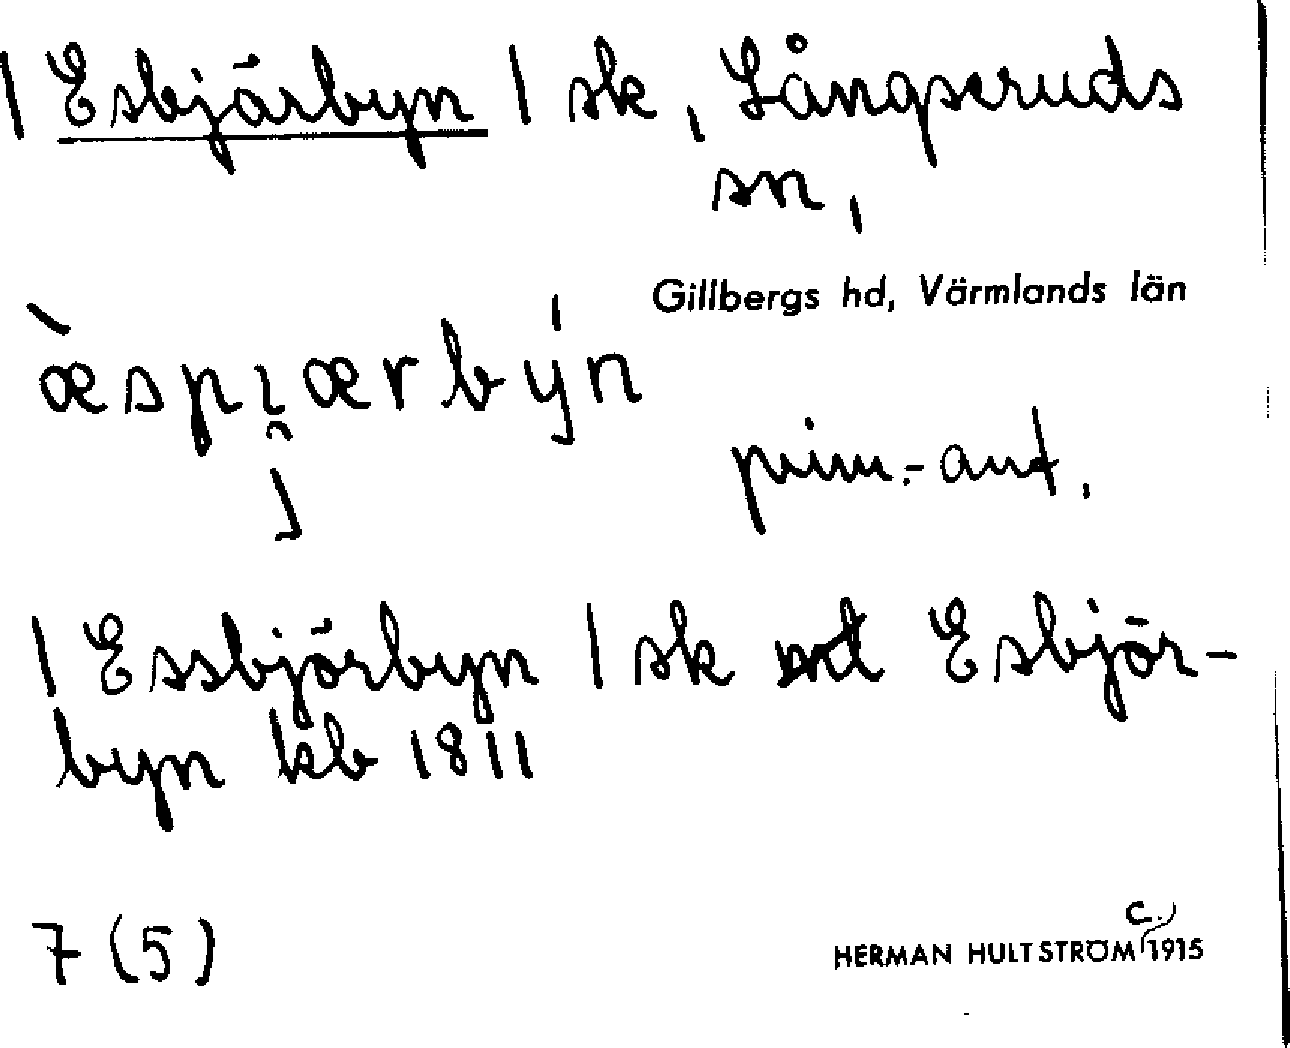 | Esbjärbyn | sk, Långseruds
sn,
Gillbergs hd, Värmlands län
æ̀spı̯ærbýn
prim.-ant.
| Essbjörbyn | sk Esbjör-
byn kb 1811
7 (5)
HERMAN HULTSTRÖM c. 1915